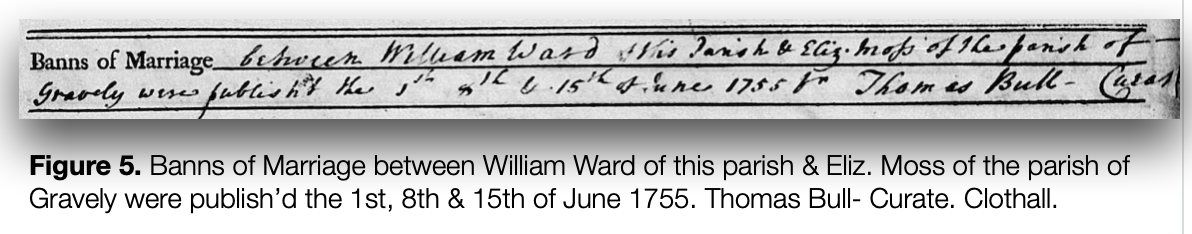 Banns of Marriage between William Ward of this Parish & Eliz. Moss of the parish of
Gravely were publish'd the 1th 8th & 15th of June 1755 Thomas Bull - Curat
Figure 5. Banns of Marriage between William Ward of this parish & Eliz. Moss of the parish of
Gravely were publish'd the 1st, 8th & 15th of June 1755. Thomas Bull- Curate. Clothall.